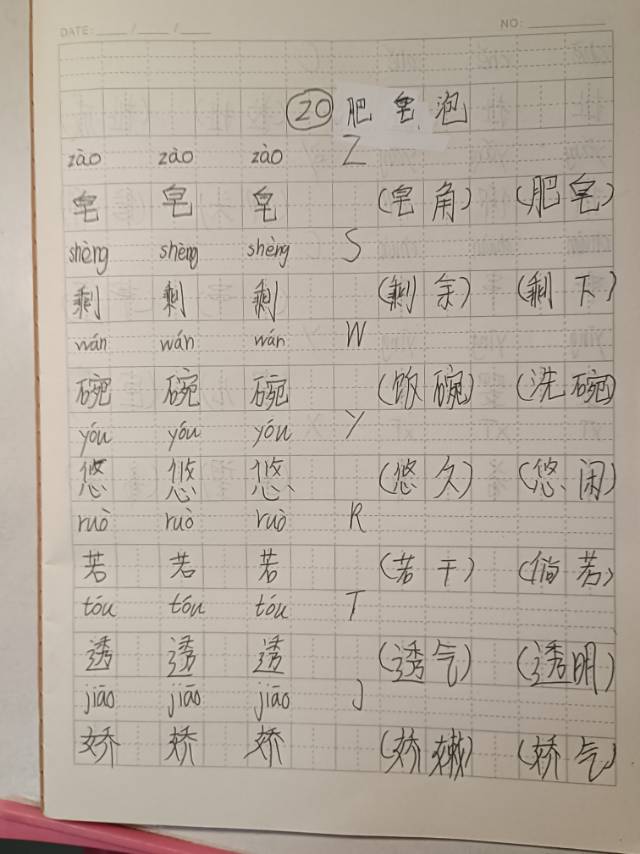 DATE: ____ / ____ / ____ NO: ________
⑳ 肥皂泡
zào zào zào Z
皂 皂 皂 (皂角) (肥皂)
shèng shèng shèng S
剩 剩 剩 (剩余) (剩下)
wán wán wán W
碗 碗 碗 (饭碗) (洗碗)
yóu yóu yóu Y
悠 悠 悠 (悠久) (悠闲)
ruò ruò ruò R
若 若 若 (若干) (倘若)
tóu tóu tóu T
透 透 透 (透气) (透明)
jiāo jiāo jiāo J
娇 娇 娇 (娇嫩) (娇气)